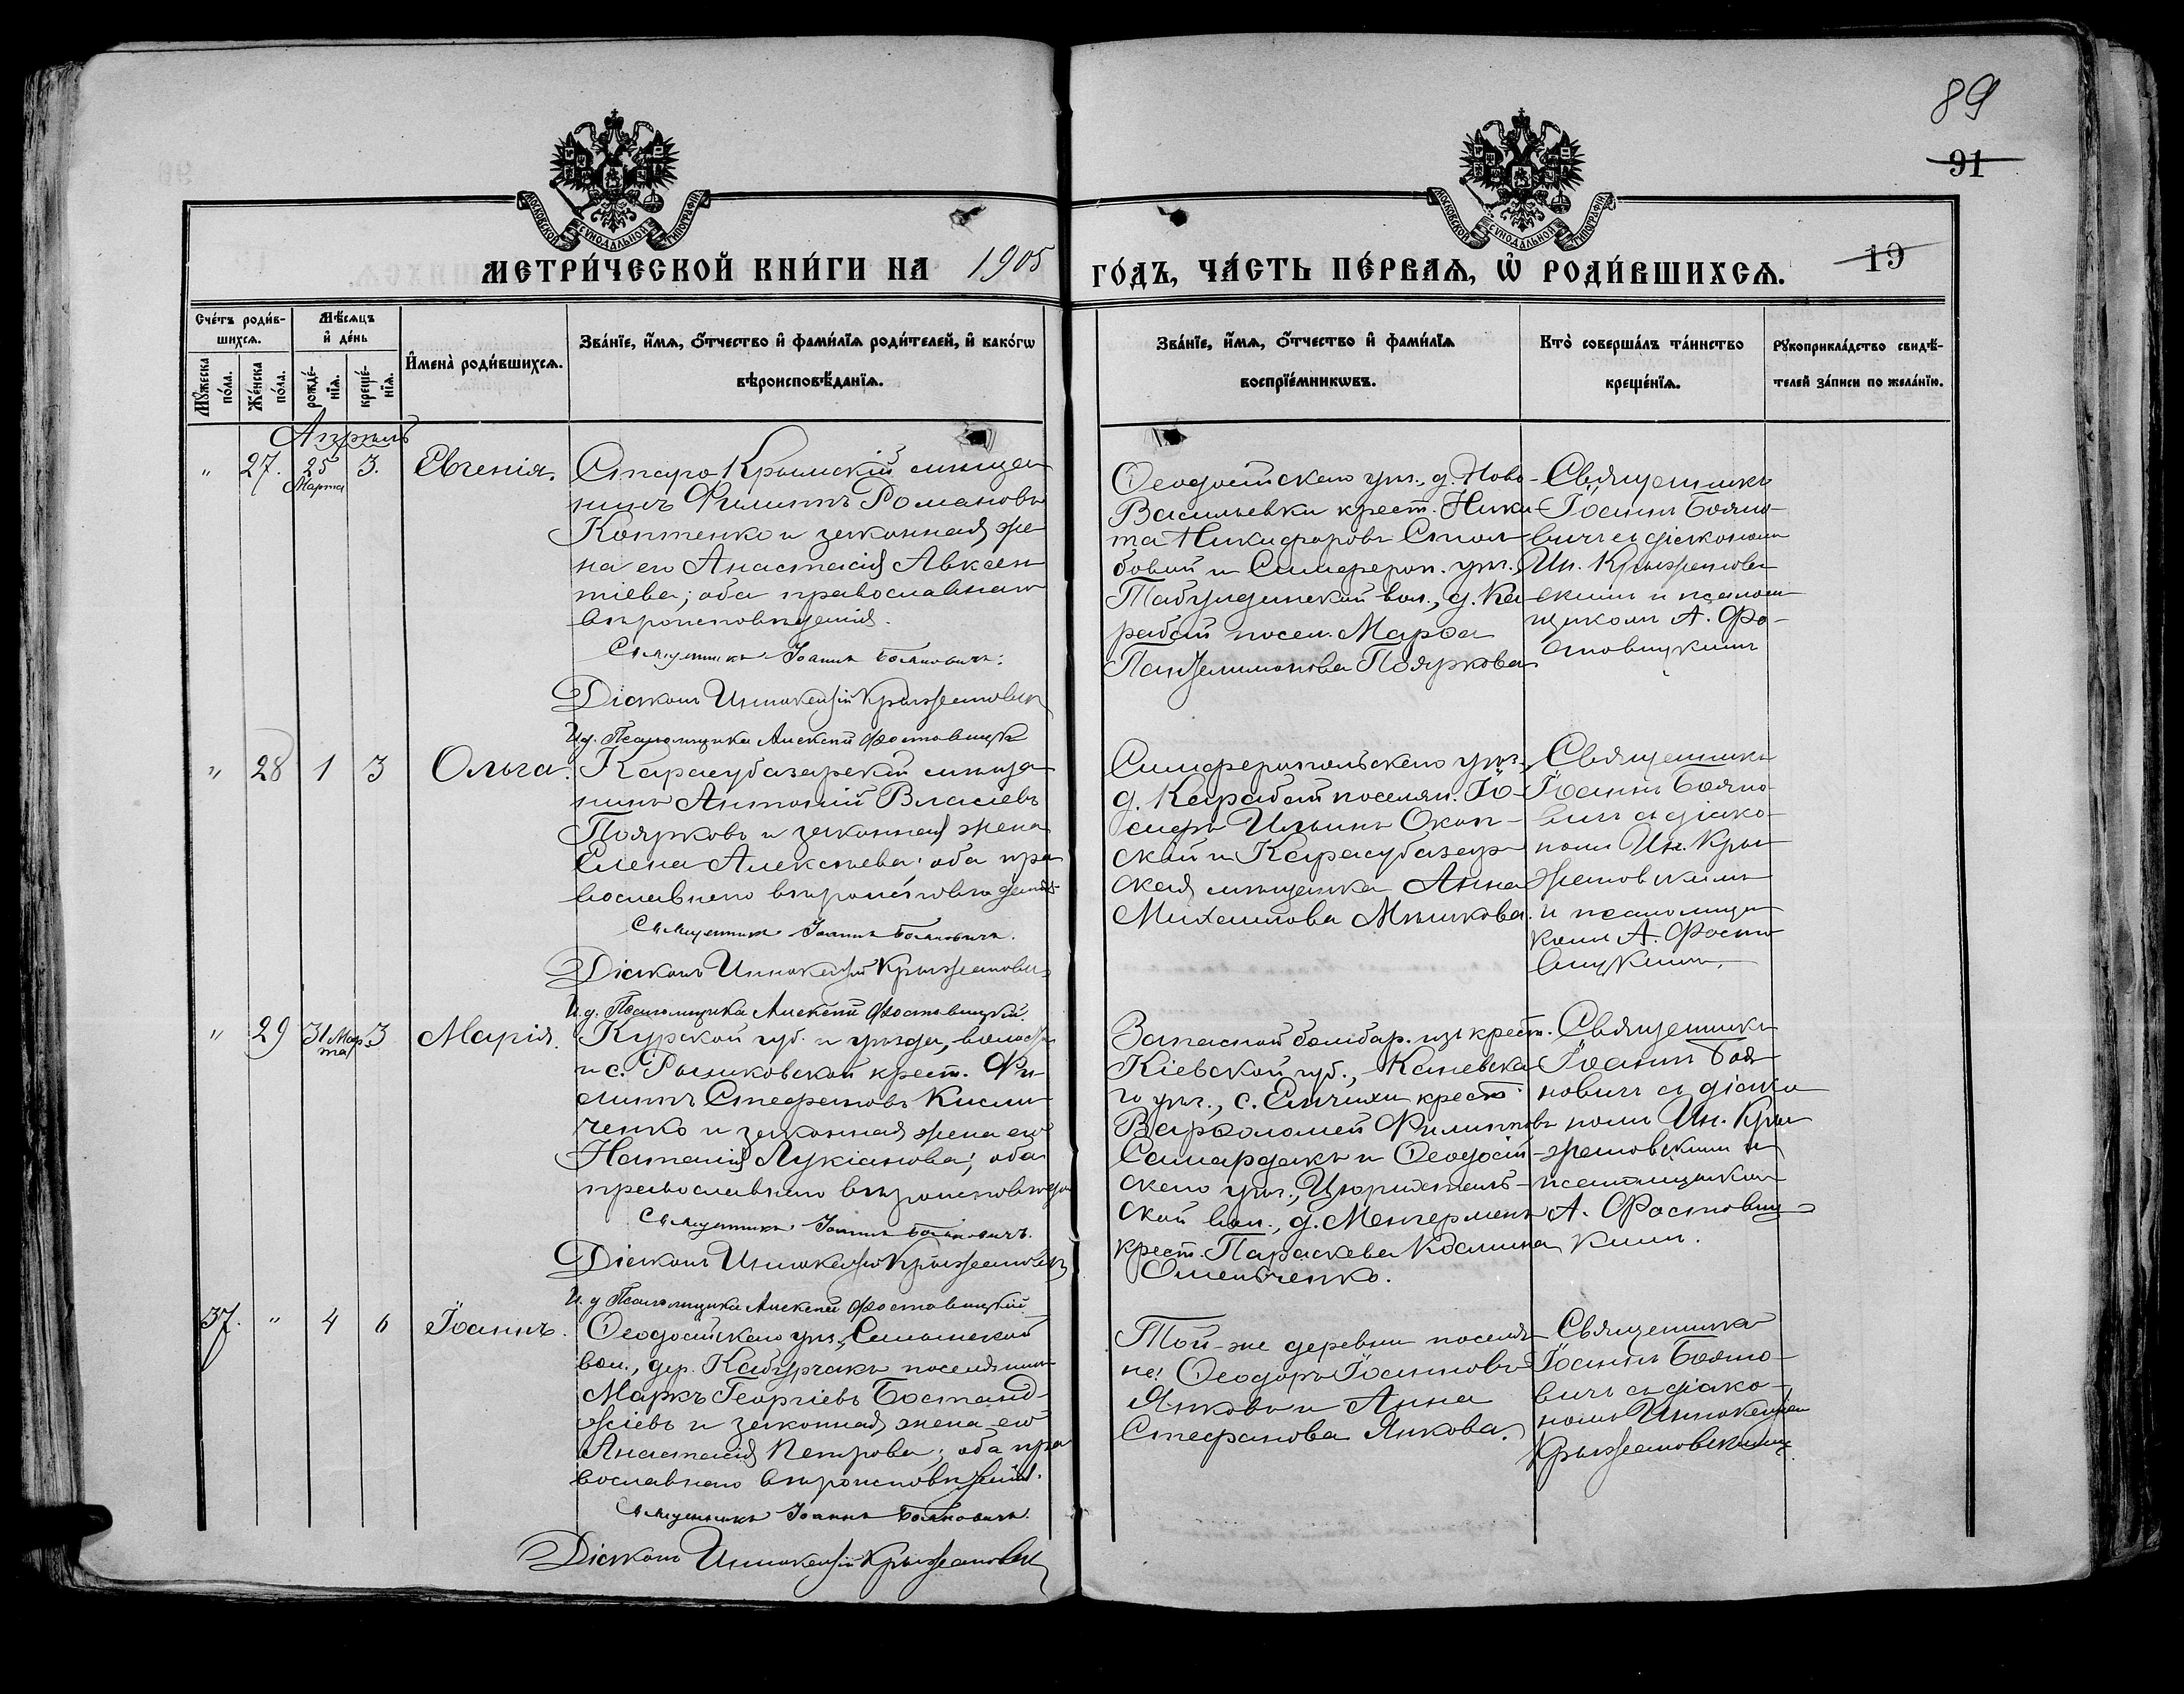 89
91
МОСКОВСКОЙ СѴНОДАЛЬНОЙ ТИПОГРАФІИ
МОСКОВСКОЙ СѴНОДАЛЬНОЙ ТИПОГРАФІИ
МЕТРИ́ЧЕСКОЙ КНИ́ГИ НА 1905
ГО́ДЪ, ЧА́СТЬ ПЕ́РВАѦ, Ѽ РОДИ́ВШИХСѦ.
19
Сче́тъ роди́в-
шихсѧ.
Мꙋ́жеска по́ла.
Же́нска по́ла.
Мѣ́сѧцъ
и҆ де́нь
рожде́-
нїѧ.
креще́-
нїѧ.
И҆мена̀ роди́вшихсѧ.
Зва́нїе, и҆́мѧ, ѻ҆́тчество и҆ фами́лїѧ роди́телей, и҆ како́гѡ
вѣроисповѣ́данїѧ.
Зва́нїе, и҆́мѧ, ѻ҆́тчество и҆ фами́лїѧ
воспрїе́мникѡвъ.
Кто̀ соверша́лъ та́инство
креще́нїѧ.
Рꙋкоприкла́дство свидѣ́-
телей за́писи по жела́нїю.
Апрѣль
" 27. 25 Марта 3. Евгенія.
Старо-Крымскій мѣща-
нинъ Филиппъ Романовъ
Коптенко и законная же-
на его Анастасія Авксен-
тіева; оба православнаго
вѣроисповѣданія.
Священникъ Іоаннъ Бояновичъ.
Діаконъ Иннокентій Крыжановскій
И.д. Псаломщика Алексѣй Фостовицкій
Ѳеодосійскаго уѣз., д. Ново-
Васильевки крест. Ники-
та Никифоровъ Стол-
бовой и Симфероп. уѣз.,
Табулдинской вол., д. Ка-
рабай посел. Марѳа
Пантелимонова Пояркова
Священникъ
Іоаннъ Бояно-
вичъ съ діакономъ
Ин. Крыжановскимъ
и псалом-
щикомъ А. Фо-
стовицкимъ
" 28 1 3 Ольга.
Карасубазарскій мѣща-
нинъ Антоній Власіевъ
Поярковъ и законная жена
Елена Алексѣева; оба пра-
вославнаго вѣроисповѣданія.
Священникъ Іоаннъ Бояновичъ.
Діаконъ Иннокентій Крыжановскій
И.д. Псаломщика Алексѣй Фостовицкій
Симферопольскаго уѣз.,
д. Карабай поселян. Іо-
сифъ Ильинъ
и Карасубазар-
ская мѣщанка Анна
Михаилова Мѣшкова.
Священникъ
Іоаннъ Бояно-
вичъ съ діако-
номъ Ин. Кры-
жановскимъ
и псаломщи-
комъ А. Фосто-
вицкимъ.
" 29 31 Мар-
та 3 Марія.
Курской губ. и уѣзда, волости
и с. Рышковской крест. Фи-
липпъ Стефановъ Кисли-
ченко и законная жена его
Наталія Лукіанова; оба
православнаго вѣроисповѣдан.
Священникъ Іоаннъ Бояновичъ.
Діаконъ Иннокентій Крыжановскій
И.д. Псаломщика Алексѣй Фостовицкій
Запасной бомбар. изъ крест.
Кіевской губ., Каневска-
го уѣз., с. Емчихи крест.
Варѳоломей Филипповъ
Самардакъ и Ѳеодосій-
скаго уѣз., Цюрихталь-
ской вол., д. Менгерменъ
крест. Параскева
Омельченко.
Священникъ
Іоаннъ Боя-
новичъ съ діако-
номъ Ин. Кры-
жановскимъ и
псаломщикомъ
А. Фостовиц-
кимъ.
37. " 4 6 Іоаннъ.
Ѳеодосійскаго уѣз., Салынской
вол., дер. Кабурчакъ поселянинъ
Маркъ Георгіевъ Бостанд-
жіевъ и законная жена его
Анастасія Петрова; оба пра-
вославнаго вѣроисповѣданія.
Священникъ Іоаннъ Бояновичъ.
Діаконъ Иннокентій Крыжановскій
Той-же деревни поселя-
не: Ѳеодоръ Іоанновъ
Янковъ и Анна
Стефанова Янкова.
Священникъ
Іоаннъ Бояно-
вичъ съ діако-
номъ Иннокентіемъ
Крыжановскимъ.